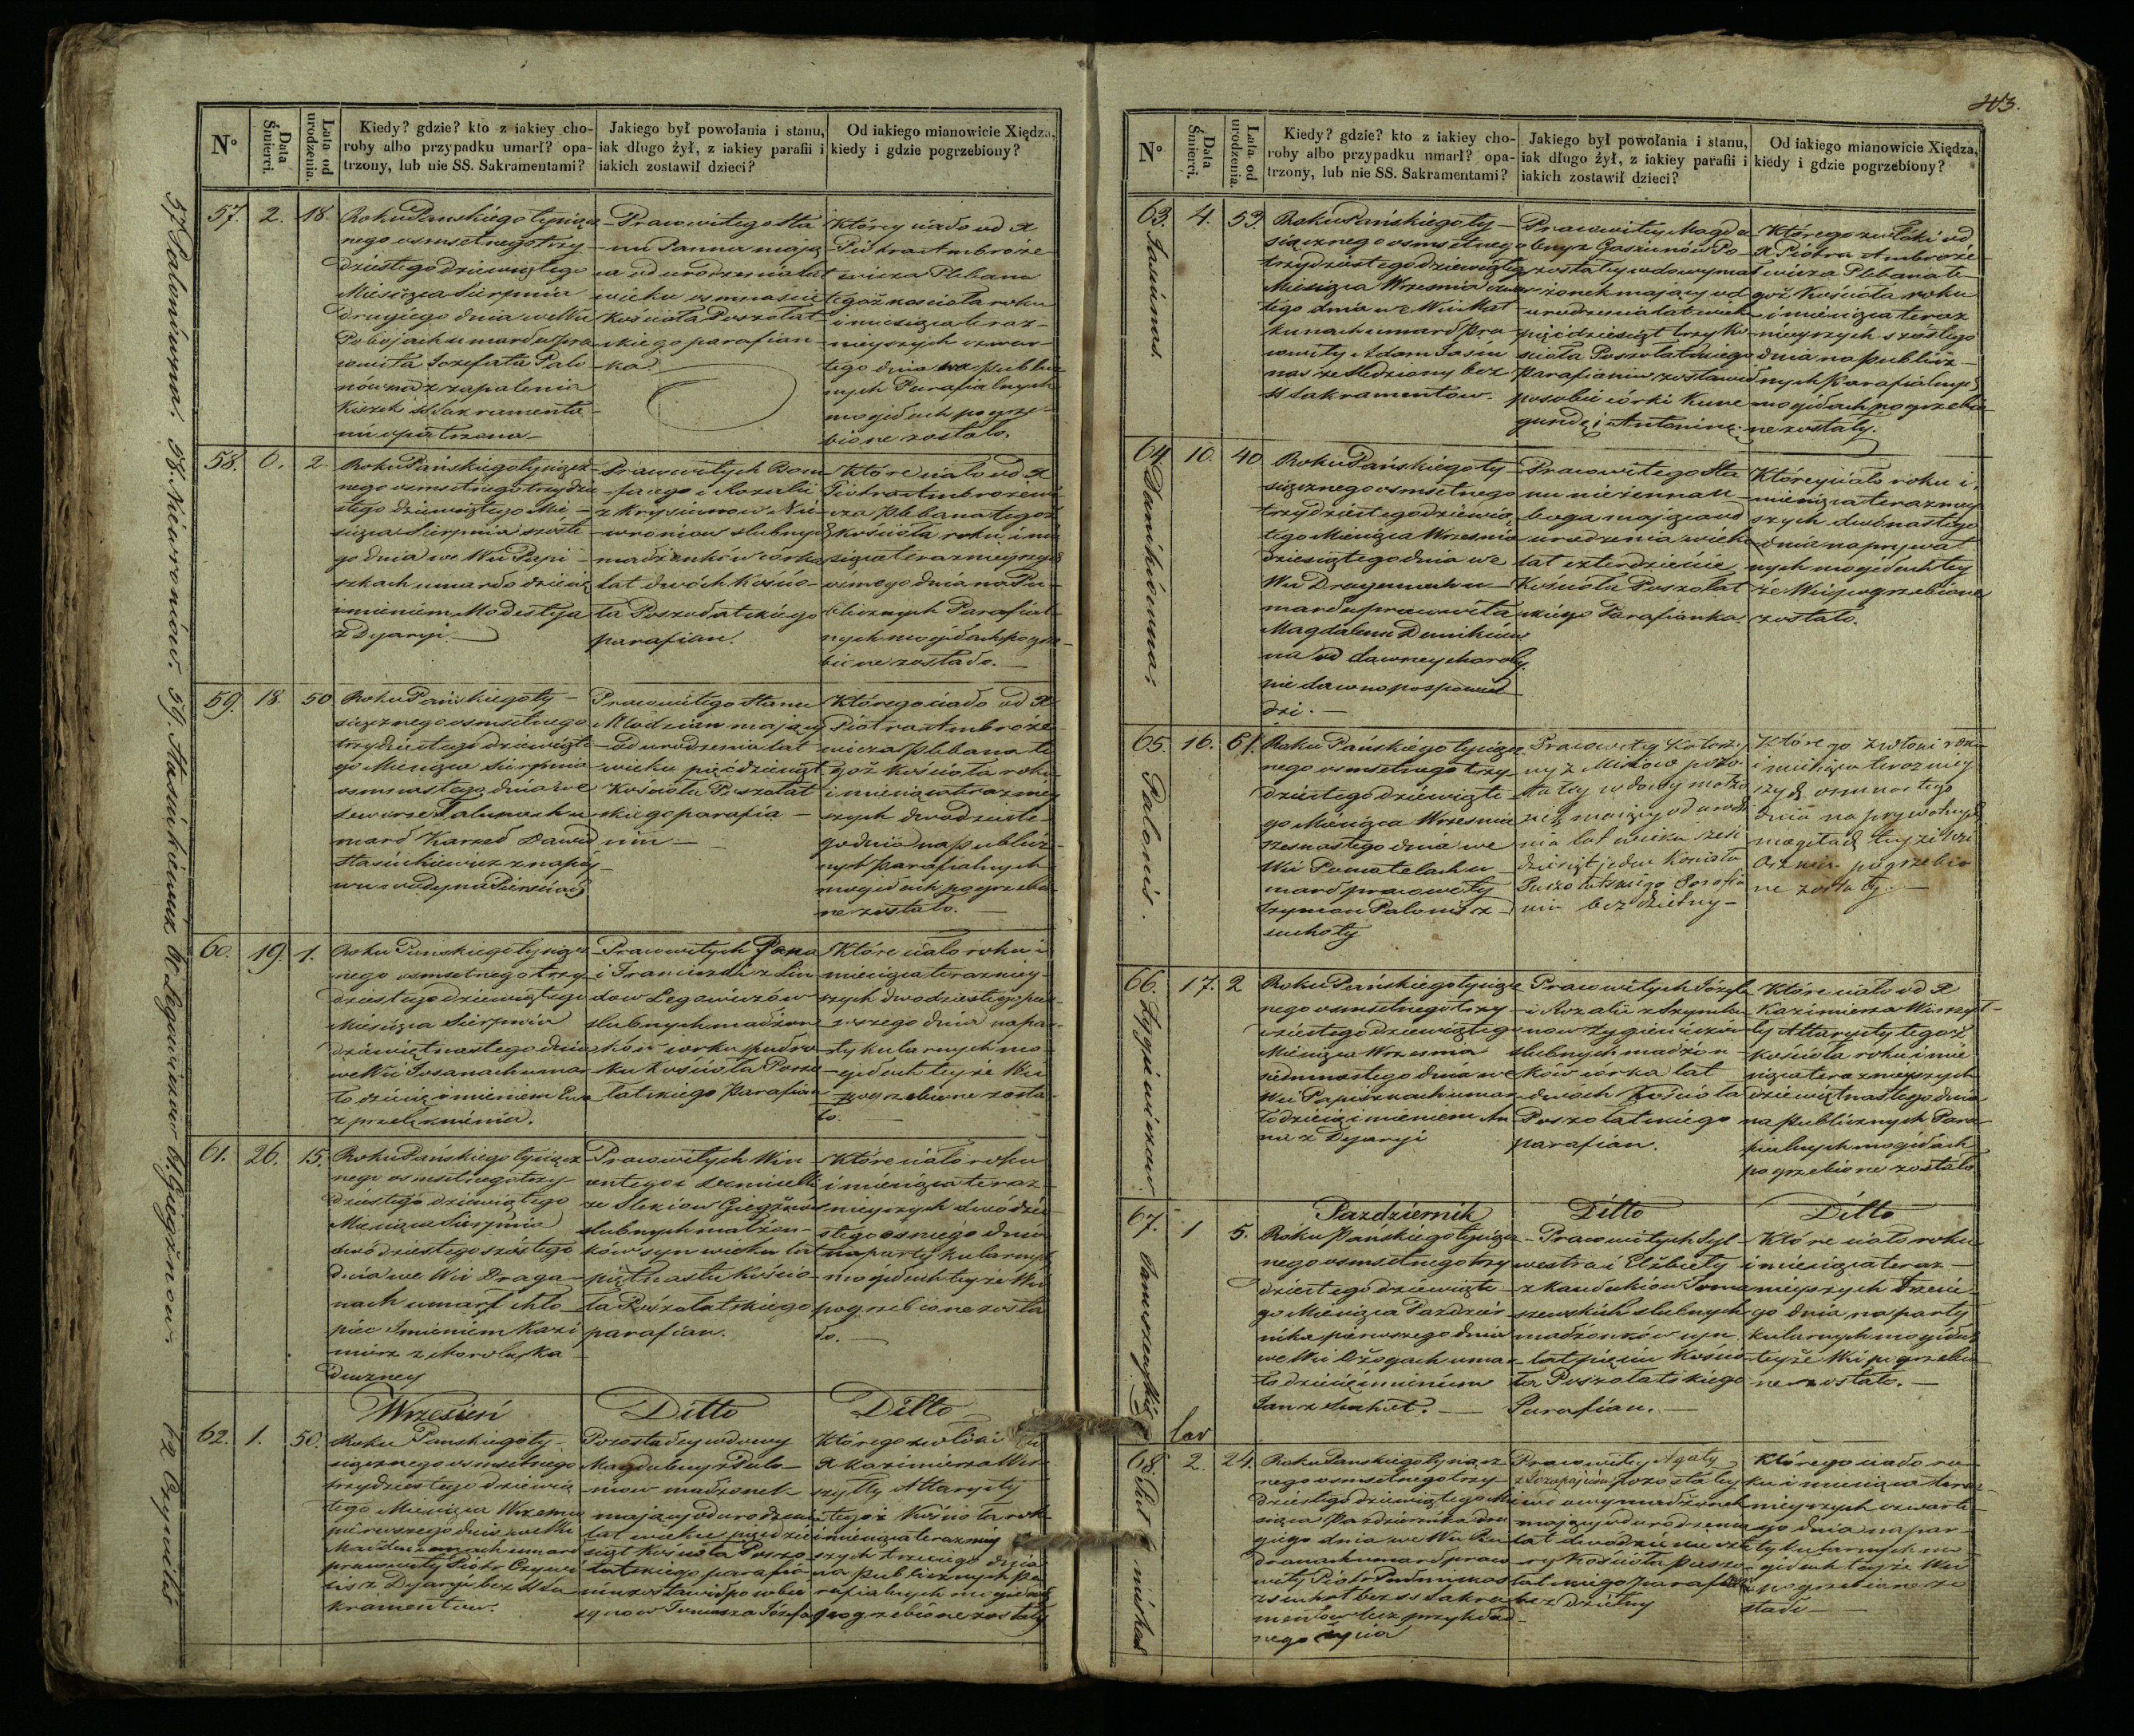 N°
Data Śmierci.
Lata od urodzenia.
Kiedy? gdzie? kto z iakiey cho-
roby albo przypadku umarł? opa-
trzony, lub nie SS. Sakramentami?
Jakiego był powołania i stanu,
iak długo żył, z iakiey parafii i
iakich zostawił dzieci?
Od iakiego mianowicie Xiędza,
kiedy i gdzie pogrzebiony?
57. 2. 18.
Roku Pańskiego tysiącz
nego osmsetnego trzy
dziestego dziewiątego
Miesiąca Sierpnia
drugiego dnia we Wsi
Pobojach umarła pra
cowita Jozefata Palo
nówna z zapalenia
Kiszek SSakramenta
mi opatrzona
Pracowitego sta
nu Panna mają
ca od urodzenia lat
wieku osmnaście
Kościoła Poszołat
skiego parafian
ka
Którey ciało od X
Piotra Ambroże
wicza Plebana
tegoż kościoła roku
i miesiąca teraz
nieyszych czwar
tego dnia na publicz
nych Parafialnych
mogiłach pogrze
bione zostało.
58. 6. 2.
Roku Pańskiego tysiącz
nego osmsetnego trzydzie
stego dziewiątego Mie
siąca Sierpnia szóste
go dnia we Wsi Papi
szkach umarło dziecię
imieniem Modestyja
z Dyaryi.
Pracowitych Boni
facego i Rozalii
z Krysiunow Nie
wroniow slubnych
małżonków córka
lat dwóch Kościo
ła Poszołatskiego
parafian.
Które ciało od X
Piotra Ambrożewi
cza Plebana tegoż
kościoła roku i mie
siąca teraznieyszych
ósmego dnia na Pu
blicznych Parafial
nych mogiłach pogrze
bione zostało.
59. 18. 50
Roku Pańskiego ty
siącznego osmsetnego
trzydziestego dziewiąte
go Miesiąca Sierpnia
osmnastego dnia we
umarł Karzeł Dawid
Stasiukiewicz z napoy
Pracowitego stanu
Młodzian mający
od urodzenia lat
wieku pięćdziesiąt
Kościoła Poszołat
skiego parafia
nin
Którego ciało od X
Piotra Ambroże
wicza Plebana te
goż Kościoła roku
i miesiąca terazniey
szych dwudzieste
go dnia na publicz
nych parafialnych
mogiłach pogrzebio
ne zostało.
60. 19. 1.
Roku Pańskiego tysiącz
nego osmsetnego trzy
dziestego dziewiątego
Miesiąca Sierpnia
dziewiętnastego dnia
we Wsi Josanach umar
ło dziecię imieniem Ewa
z przelęknienia.
Pracowitych Jana
i Franciszki z Lin
dow Legowiczów
slubnych małżon
ków córka półro
ku Kościoła Poszo
łatskiego Parafian
Które ciało roku i
miesiąca terazniey
szych dwudziestego pier
wszego dnia na par
tykularnych mo
giłach teyże Wsi
pogrzebione zosta
ło.
61. 26. 15.
Roku Pańskiego tysiącz
nego osmsetnego trzy
dziestego dziewiątego
Miesiąca Sierpnia
dwudziestego szóstego
dnia we Wsi Draga
nach umarł chło
piec Imieniem Kazi
mierz z choroby Ka
duczney
Pracowitych Win
centego i Domiceli
ze Slizjow Giegżnow
slubnych małżon
ków syn wieku lat
piętnastu Kościo
ła Poszołatskiego
parafian.
Które ciało roku
i miesiąca teraz
nieyszych dwudzie
stego osmego dnia
na partykularnych
mogiłach teyże Wsi
pogrzebione zosta
ło.
Wrzesień Ditto Ditto
62. 1. 50.
Roku Pańskiego ty
siącznego osmsetnego
trzydziestego dziewią
tego Miesiąca Wrzesnia
pierwszego dnia we Wsi
umarł
pracowity Piotr Czywi
lis z Dyaryi bez SSa
kramentow.
Pozostałey wdowy
Magdaleny z Palo
niow małżonek
mający od urodzenia
lat wieku pięćdzie
siąt Kościoła Poszo
łatskiego parafia
nin zostawił po sobie
synow Tomasza Józefa
Którego zwłoki od
X Kazimierza Wir
szyłły Altarysty
tegoż Kościoła rok
i miesiąca teraznieй
szych trzeciego dnia
na publicznych Pa
rafialnych mogiłach
pogrzebione zostały
57 Paloniówna. 58. Niewroniów. 59. Stasiukiewicz 60. Legowiczow 61. Giegżnow. 62 Czywilis
43.
N°
Data Śmierci.
Lata od urodzenia.
Kiedy? gdzie? kto z iakiey cho-
roby albo przypadku umarł? opa-
trzony, lub nie SS. Sakramentami?
Jakiego był powołania i stanu,
iak długo żył, z iakiey parafii i
iakich zostawił dzieci?
Od iakiego mianowicie Xiędza,
kiedy i gdzie pogrzebiony?
63. Jasiunas. 4. 53.
Roku Pańskiego ty
siącznego osmsetnego
trzydziestego dziewiątego
Miesiąca Wrzesnia czwar
tego dnia we Wsi Mat
kunach umarł Pra
cowity Adam Jasiu
nas ze sledziony bez
SSakramentow.
Pracowitey Magda
leny z Gasiunów Po
zostałey wdowy mał
żonek mający od
urodzenia lat wieku
pięćdziesiąt trzy Ko
ścioła Poszołatskiego
Parafianin zostawił
po sobie córki Kune
gundę i Antoninę.
Którego zwłoki od
X Piotra Ambroże
wicza Plebana te
goż Kościoła roku
i miesiąca teraz
nieyszych szóstego
dnia na publicz
nych Parafialnych
mogiłach pogrzebio
ne zostały.
64 Dunikówna. 10. 40
Roku Pańskiego ty
siącznego osmsetnego
trzydziestego dziewią
tego Miesiąca Wrzesnia
dziesiątego dnia we
Wsi Draganach u
marła pracowita
Magdalena Duników
na od dawney choroby
nie dawno po spowie
dzi.
Pracowitego sta
nu niezenna u
boga mająca od
urodzenia wieku
lat czterdzieście
Kościoła Poszołat
skiego Parafianka.
Którey ciało roku i
miesiąca terazniey
szych dwónastego
dnia na prywat
nych mogiłach tey
że Wsi pogrzebione
zostało.
65. Palonis. 16. 61.
Roku Pańskiego tysiącz
nego osmsetnego trzy
dziestego dziewiąte
go Miesiąca Wrzesnia
szesnastego dnia we
Wsi Pomotelach u
marł pracowity
Szymon Palonis z
suchoty
Pracowitey Katarzy
ny z Misiow pozo
stałey wdowy małżo
nek mający od urodze
nia lat wieku sześć
dziesiąt jeden Kościoła
Poszołatskiego Parafia
nin bezdzietny
Którego zwłoki roku
i miesiąca teraźniey
szych osmnastego
dnia na prywatnych
mogiłach teyże Wsi
pogrzebio
ne zostały.
66. Zygiewiczow. 17. 2
Roku Pańskiego tysiącz
nego osmsetnego trzy
dziestego dziewiątego
Miesiąca Wrzesnia
siedmnastego dnia we
Wsi Papiszkach umar
ło dziecię imieniem An
na z Dyaryi
Pracowitych Józefa
i Rozalii z Szymku
now Zygiewiczow
slubnych małżon
ków córka lat
dwóch Kościoła
Poszołatskiego
parafian.
Które ciało od X
Kazimierza Wirszył
ły Altarysty tegoż
kościoła roku i mie
siąca teraznieyszych
dziewiętnastego dnia
na publicznych Para
fialnych mogiłach
pogrzebione zostało
Pazdziernik Ditto Ditto
67. Tomaszewskich 1 5.
Roku Pańskiego tysiącz
nego osmsetnego trzy
dziestego dziewiąte
go Miesiąca Pazdzier
nika pierwszego dnia
we Wsi Ożogach umar
ło dziecię imieniem
Jan z Suchot.
Pracowitych Syl
westra i Elżbiety
z Kaudukiow Toma
szewskich slubnych
małżonków syn
lat pięciu Kościo
ła Poszołatskiego
Parafian.
Które ciało roku
i miesiąca teraz
nieyszych trzecie
go dnia na party
kularnych mogiłach
teyże Wsi pogrzebio
ne zostało.
68. 2. 24.
Roku Pańskiego tysiącz
nego osmsetnego trzy
dziestego dziewiątego Mie
siąca Pazdziernika dru
giego dnia we Wsi
umarł praco
wity Piotr
z suchot bez SSakra
mentow lecz przykład
nego życia
Pracowitey Agaty
pozostałey
wdowy małżonek
mający od urodzenia
lat dwadzieścia czte
ry Kościoła Poszo
łatskiego Parafianin
bezdzietny
Którego ciało ro
ku i miesiąca teraz
nieyszych czwarte
go dnia na par
tykularnych mo
giłach teyże Wsi
pogrzebione zo
stało